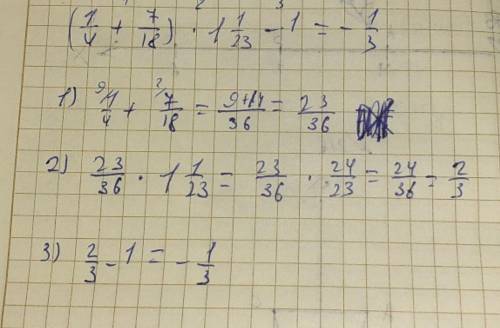 (1/4 + 7/18) · 1 1/23 - 1 = - 1/3
1) ⁹1/4 + ²7/18 = 9+14/36 = 23/36
2) 23/36 · 1 1/23 = 23/36 · 24/23 = 24/36 = 2/3
3) 2/3 - 1 = - 1/3